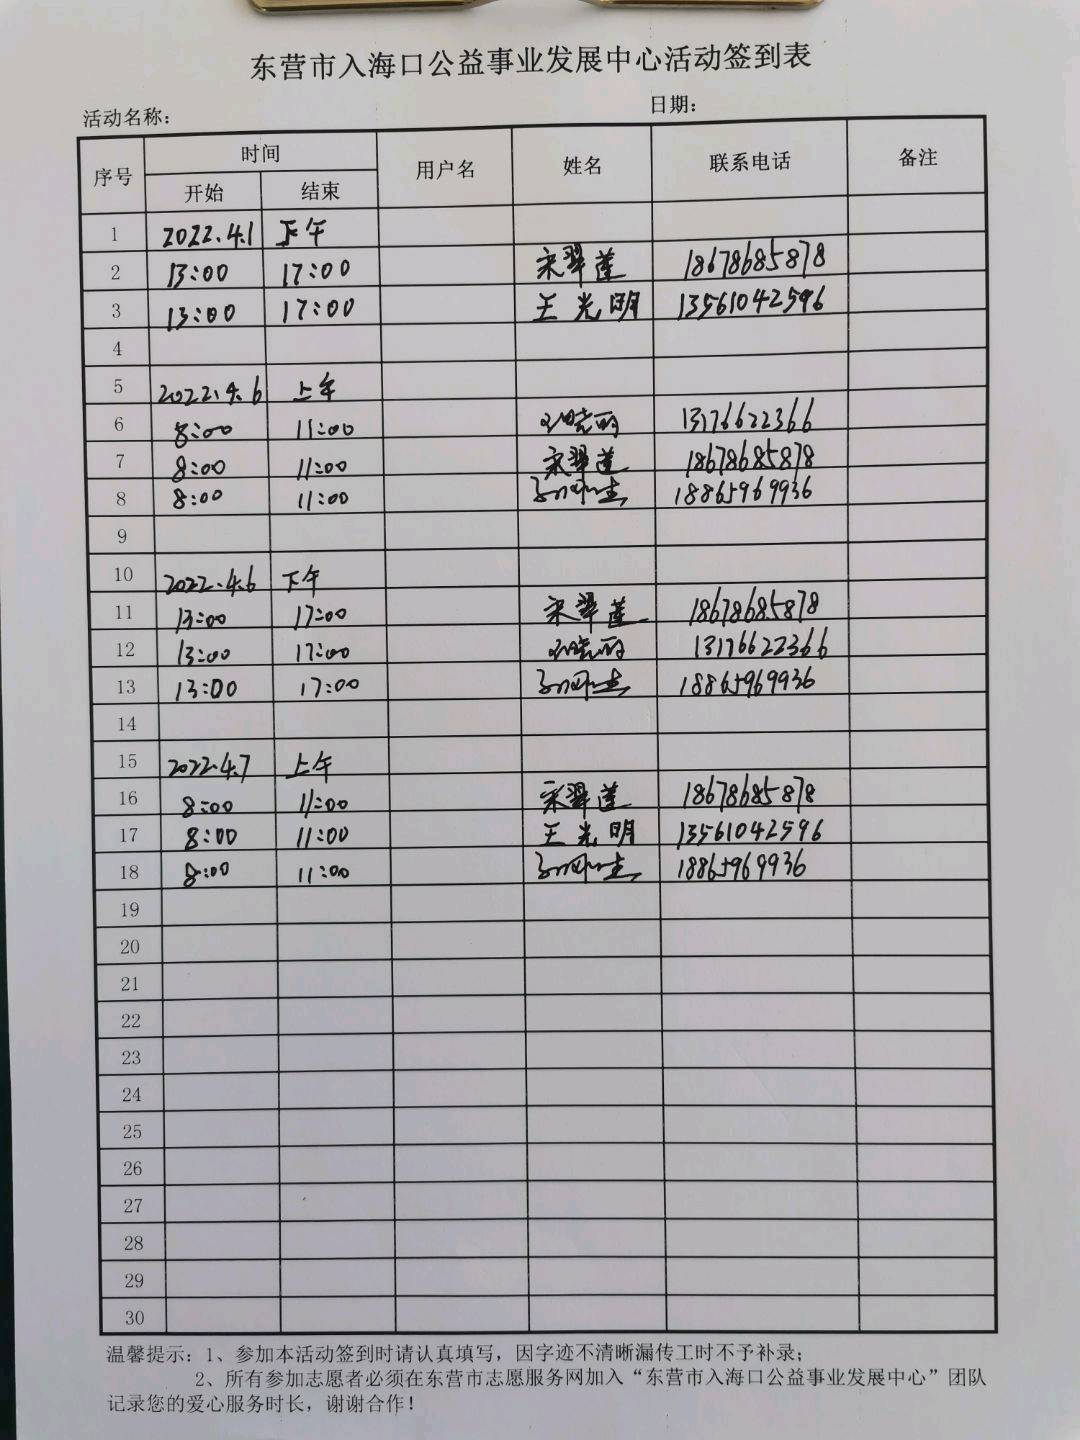 东营市入海口公益事业发展中心活动签到表
活动名称： 日期：
序号 时间 用户名 姓名 联系电话 备注
开始 结束
1 2022.4.1 下午
2 13:00 17:00 宋翠莲 18678685878
3 13:00 17:00 王光明 13561042596
4
5 2022.4.6 上午
6 8:00 11:00 13176622366
7 8:00 11:00 宋翠莲 18678685878
8 8:00 11:00 18865969936
9
10 2022.4.6 下午
11 13:00 17:00 宋翠莲 18678685878
12 13:00 17:00 13176622366
13 13:00 17:00 18865969936
14
15 2022.4.7 上午
16 8:00 11:00 宋翠莲 18678685878
17 8:00 11:00 王光明 13561042596
18 8:00 11:00 18865969936
19
20
21
22
23
24
25
26
27
28
29
30
温馨提示：1、参加本活动签到时请认真填写，因字迹不清晰漏传工时不予补录；
2、所有参加志愿者必须在东营市志愿服务网加入“东营市入海口公益事业发展中心”团队
记录您的爱心服务时长，谢谢合作！